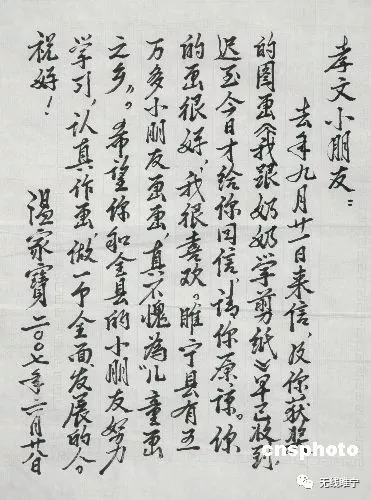 孝文小朋友：
去年九月廿一日来信，及你获奖
的图画《我跟奶奶学剪纸》早已收到，
迟至今日才给你回信，请你原谅。你
的画很好，我很喜欢。睢宁县有五
万多小朋友画画，真不愧为儿童画
之乡。希望你和全县的小朋友努力
学习，认真作画，做一个全面发展的人。
祝好！
温家寶 二〇〇七年
cnsphoto
无线睢宁